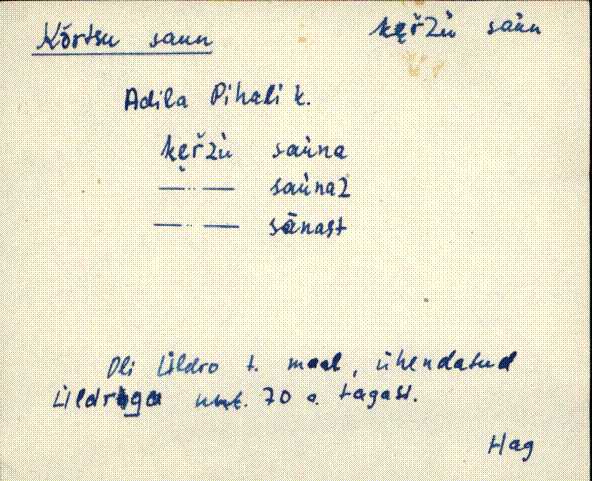 Kõrtsu saun kę̆řzù saùn
Adila Pihali k.
kę̆řzù saùna
—..— saùnaz
—..— sānast
Oli Lildro t. maal, ühendatud
Lildroga umb. 70 a. tagasi.
Hag